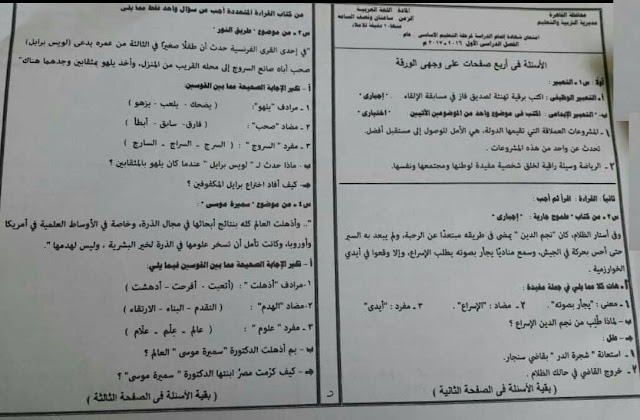 محافظة القاهرة
مديرية التربية والتعليم
المادة: اللغة العربية
الزمن: ساعتان ونصف الساعة
امتحان شهادة إتمام الدراسة لمرحلة التعليم الأساسي عام
الفصل الدراسى الأول ٢٠١٦ - ٢٠١٧ م
الأسئلة فى أربع صفحات على وجهى الورقة
أولاً : س١ - التعبير :
أ - التعبير الوظيفى : اكتب برقية تهنئة لصديق فاز في مسابقة الإلقاء . " إجبارى "
ب- التعبير الإبداعى : اكتب فى موضوع واحد من الموضوعين الآتيين " اختيارى "
١ - المشروعات العملاقة التي تقيمها الدولة، هي الأمل للوصول إلى مستقبل أفضل.
تحدث عن واحد من هذه المشروعات .
٢ - الرياضة وسيلة راقية لخلق شخصية مفيدة لوطنها ومجتمعها ونفسها.
ثانيا : القراءة : اقرأ ثم أجب :
س٢ - من كتاب " طموح جارية " : " إجبارى "
وفي أستار الظلام، كان " نجم الدين " يمضى فى طريقه مبتعدًا عن الرحبة، ولم يبعد به السير
حتى أحس بحركة في الجيش، وسمع مناديًا يجأر بصوته يطلب الإسراع، وإلا وقعوا في أيدي
الخوارزمية .
أ - هات كلا مما يلي، في جملة مفيدة :
١ - معنى : " يجأر بصوته ". ٢ - مضاد : " الإسراع ". ٣ - مفرد : " أيدى "
ب - لماذا طُلِب من نجم الدين الإسراع ؟
جـ - علل :
١ - استعانة " شجرة الدر " بقاضي سنجار.
٢ - خروج القاضي في حالك الظلام .
( بقية الأسئلة فى الصفحة الثانية )
من كتاب القراءة المتعددة أجب عن سؤال واحد فقط مما يلى
س٣ - من موضوع " طريق النور "
" في إحدى القرى الفرنسية حدث أن طفلًا صغيرًا في الثالثة من عمره يدعى (لويس برايل)
صحب أباه صانع السروج إلى محله القريب من المنزل، وأخذ يلهو بمثقابين وجدهما هناك"
أ - تخير الإجابة الصحيحة مما بين القوسين
١ - مرادف "يلهو": ( يضحك - يلعب - يزهو )
٢ - مضاد "صحب": ( فارق - سابق - أبطأ )
٣ - مفرد " السروج " : ( السرج - السراج - السارج )
ب - ماذا حدث لـ " لويس برايل " عندما كان يلهو بالمثقابين ؟
جـ - كيف أفاد اختراع برايل المكفوفين ؟
س٤ - من موضوع " سميرة موسى "
".. وأذهلت العالم كله بنتائج أبحاثها في مجال الذرة، وخاصة في الأوساط العلمية في أمريكا
وأوروبا، وكانت تأمل أن تسخر علومها في الذرة لخير البشرية ، وليس لهدمها ".
أ - تخير الإجابة الصحيحة مما بين القوسين فيما يلي
١ - مرادف " أذهلت " : ( أتعبت - أفرحت - أدهشت )
٢ - مضاد "الهدم" : ( التقدم - البناء - الارتقاء )
٣ - مفرد " علوم " : ( عالم - عِلْم - علّام )
ب - بم أذهلت الدكتورة " سميرة موسى " العالم ؟
جـ - كيف كرّمت مصرُ ابنتها الدكتورة " سميرة موسى " ؟
( بقية الأسئلة فى الصفحة الثالثة )